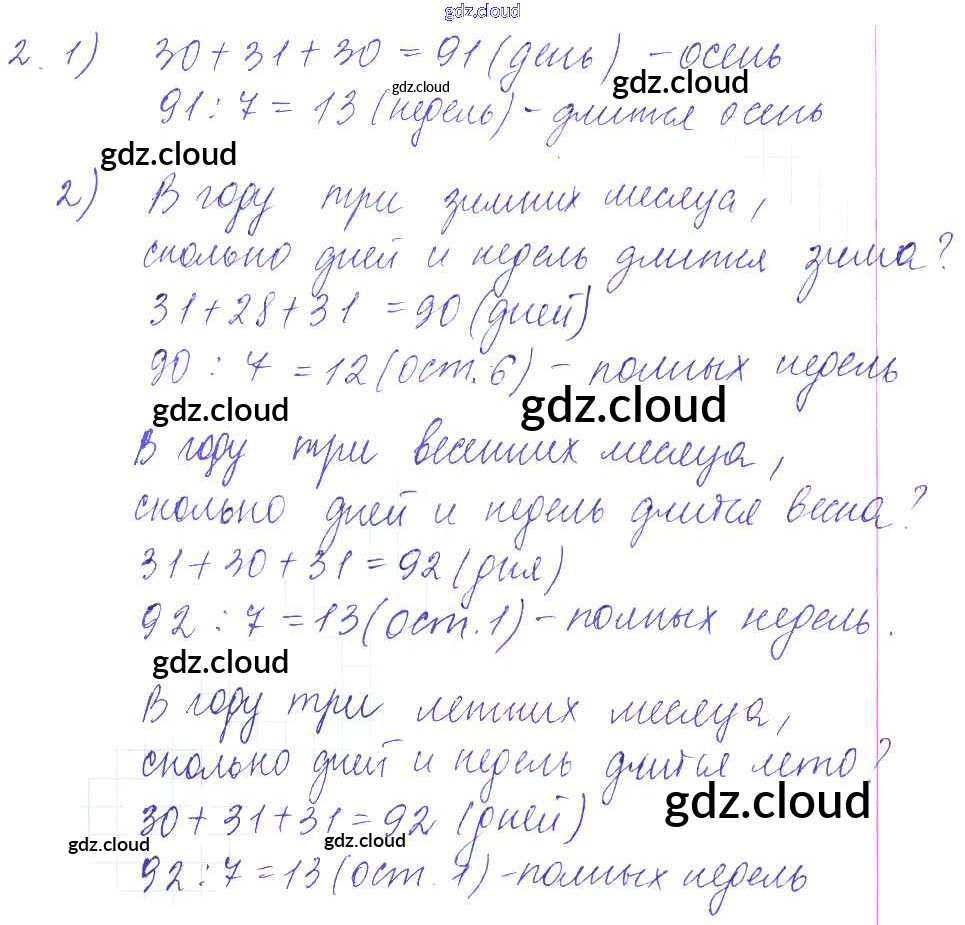 gdz.cloud
2. 1) 30 + 31 + 30 = 91 (день) - осень
gdz.cloud gdz.cloud
91 : 7 = 13 (недель) - длится осень
gdz.cloud
2) В году три зимних месяца,
сколько дней и недель длится зима?
31 + 28 + 31 = 90 (дней)
90 : 7 = 12 (ост. 6) - полных недель
gdz.cloud gdz.cloud
В году три весенних месяца,
сколько дней и недель длится весна?
31 + 30 + 31 = 92 (дня)
92 : 7 = 13 (ост. 1) - полных недель.
gdz.cloud
В году три летних месяца,
сколько дней и недель длится лето?
gdz.cloud
30 + 31 + 31 = 92 (дней)
gdz.cloud gdz.cloud
92 : 7 = 13 (ост. 1) - полных недель